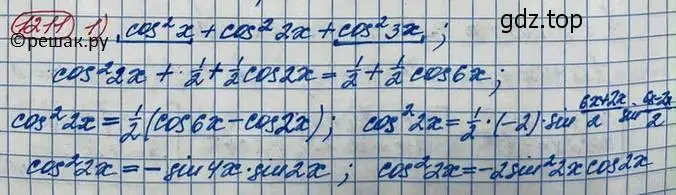 gdz.top
1211 1) cos²x + cos²2x + cos²3x ;
©reшак.ru
cos²2x + 1/2 + 1/2 cos2x = 1/2 + 1/2 cos6x ;
cos²2x = 1/2 (cos6x - cos2x) ; cos²2x = 1/2 · (-2) · sin (6x+2x)/2 · sin (6x-2x)/2
cos²2x = - sin4x · sin2x ; cos²2x = -2sin²2x cos2x